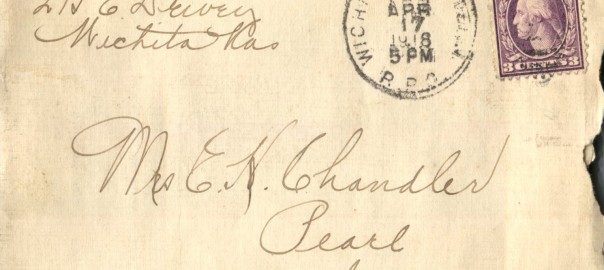 215 E Dewey
Wichita Kas
WICHI
APR
17
1918
5 PM
R.P.O.
3 CENTS 3
Mrs E. H. Chandler
Pearl